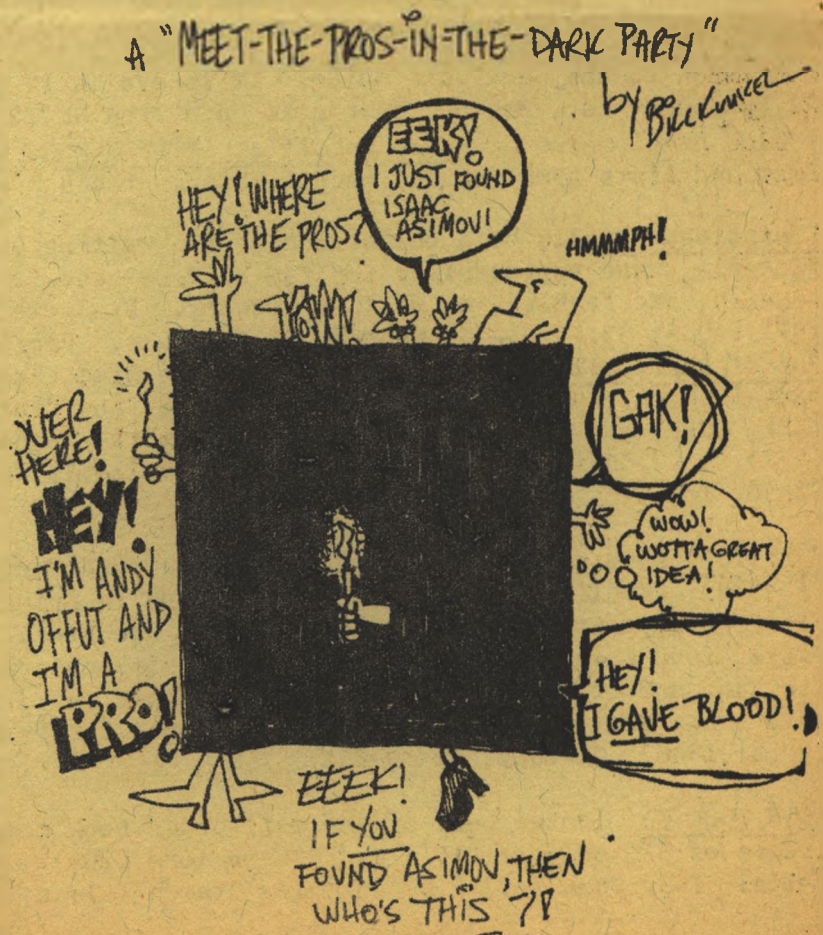 A "MEET-THE-PROS-IN-THE-DARK PARTY"
by Bill Kunkel
HEY! WHERE
ARE THE PROS?
EEK!
I JUST FOUND
ISAAC
ASIMOV!
HMMMPH!
YOW!
GAK!
OVER
HERE!
HEY!
I'M ANDY
OFFUT AND
I'M A
PRO!
WOW!
WOTTA GREAT
IDEA!
HEY!
I GAVE BLOOD!
EEEK!
IF YOU
FOUND ASIMOV, THEN
WHO'S THIS ?!